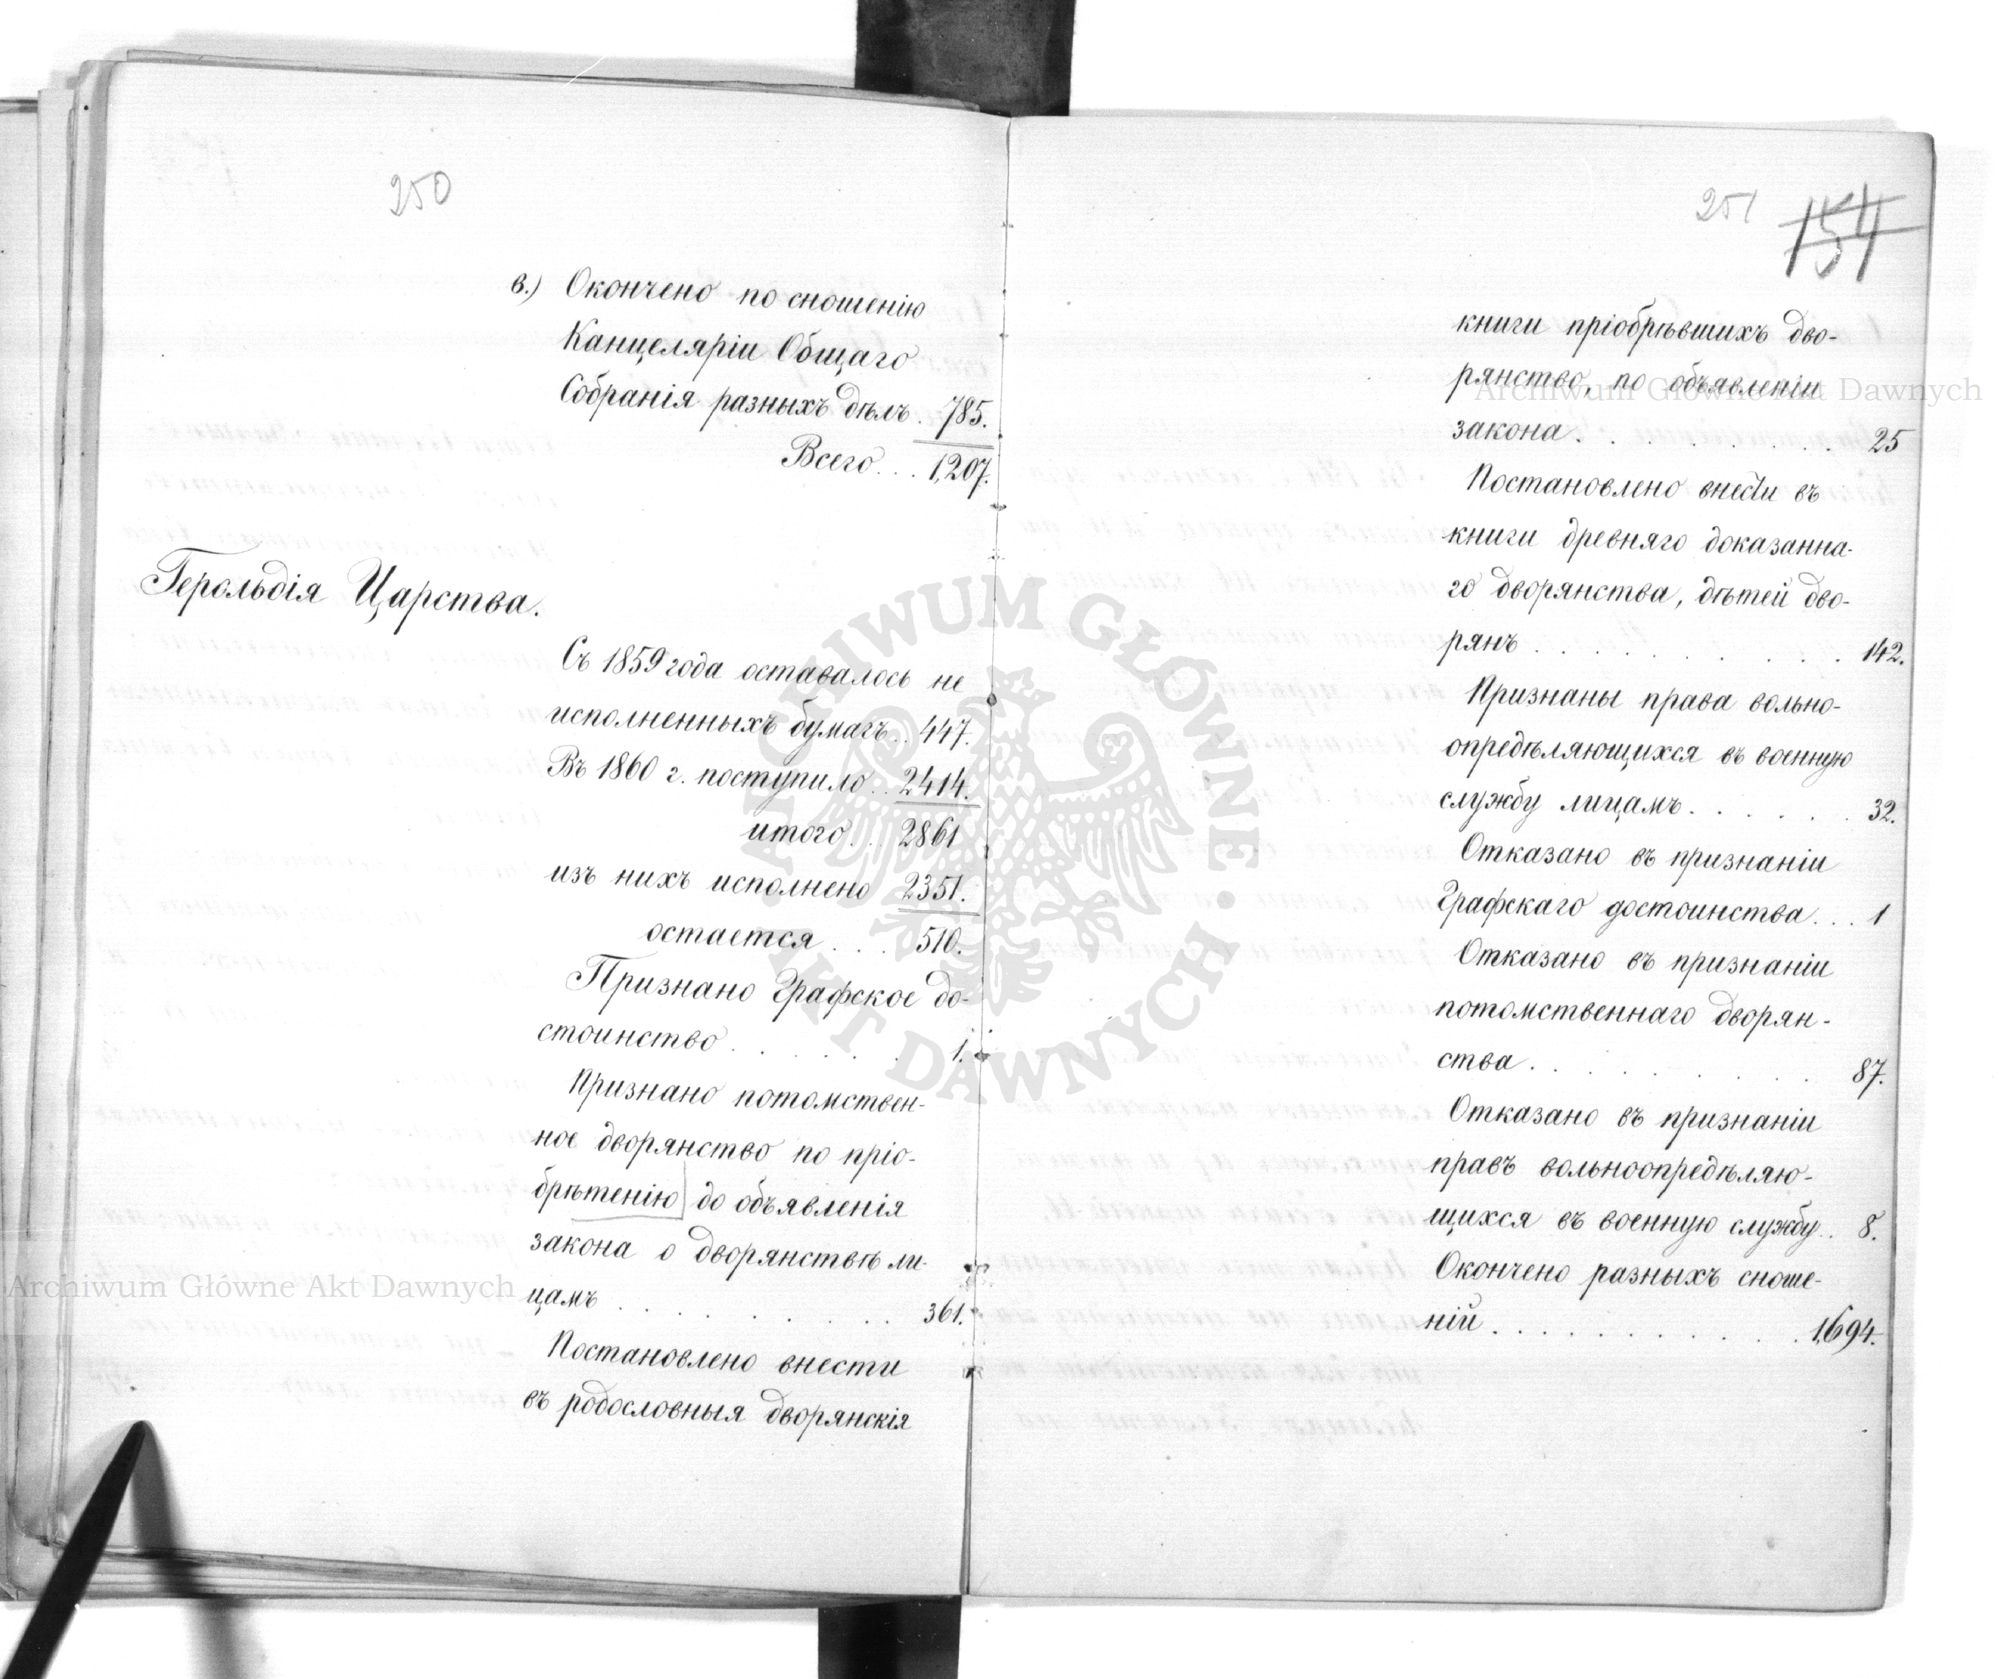 250
в.) Окончено по сношенію
Канцеляріи Общаго
Собранія разныхъ дѣлъ . 785.
Всего . . . 1,207.
Герольдія Царства.
Съ 1859 года оставалось не
исполненныхъ бумагъ . . 447.
Въ 1860 г. поступило . . 2414.
итого . . . 2861
изъ нихъ исполнено 2351.
остается . . . . 510.
Признано Графское до-
стоинство . . . . . . . 1.
Признано потомствен-
ное дворянство по пріо-
брѣтенію до объявленія
закона о дворянствѣ ли-
цамъ . . . . . . . . 361.
Постановлено внести
въ родословныя дворянскія
251 154
книги пріобрѣвшихъ дво-
рянство, по объявленіи
закона . . . . . . . . . 25
Постановлено внести въ
книги древняго доказанна-
го дворянства, дѣтей дво-
рянъ . . . . . . . . . . . 142.
Признаны права вольно-
опредѣляющихся въ военную
службу лицамъ . . . . . . 32.
Отказано въ признаніи
Графскаго достоинства . . . 1
Отказано въ признаніи
потомственнаго дворян-
ства . . . . . . . . . . 87.
Отказано въ признаніи
правъ вольноопредѣляю-
щихся въ военную службу . . 8.
Окончено разныхъ сноше-
ній . . . . . . . . . . . 1,694.
ARCHIWUM GŁÓWNE AKT DAWNYCH
Archiwum Główne Akt Dawnych
Archiwum Główne Akt Dawnych